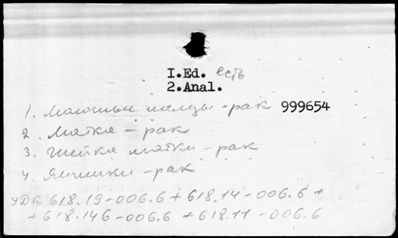 I.Ed. есть
2.Anal.
1. Молочные железы - рак 999654
2. Матка - рак
3. Шейка матки - рак
4. Яичники - рак
УДК 618.19-006.6 + 618.14-006.6 +
+ 618.146-006.6 + 618.11-006.6